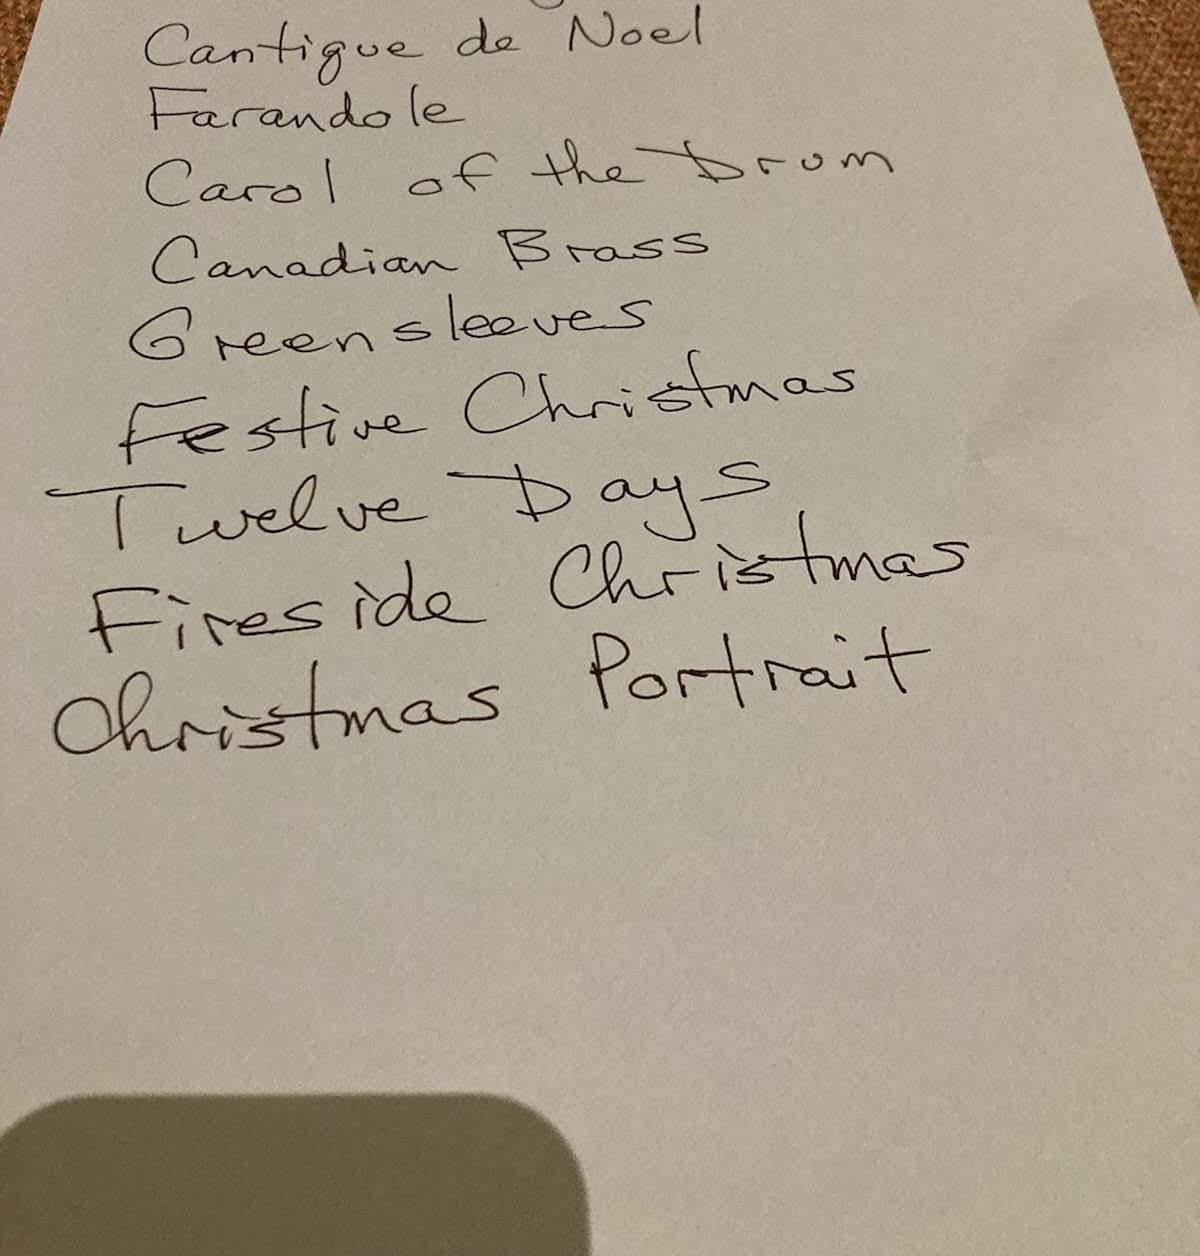 Cantigue de Noel
Farandole
Carol of the Drum
Canadian Brass
Greensleeves
Festive Christmas
Twelve Days
Fireside Christmas
Christmas Portrait